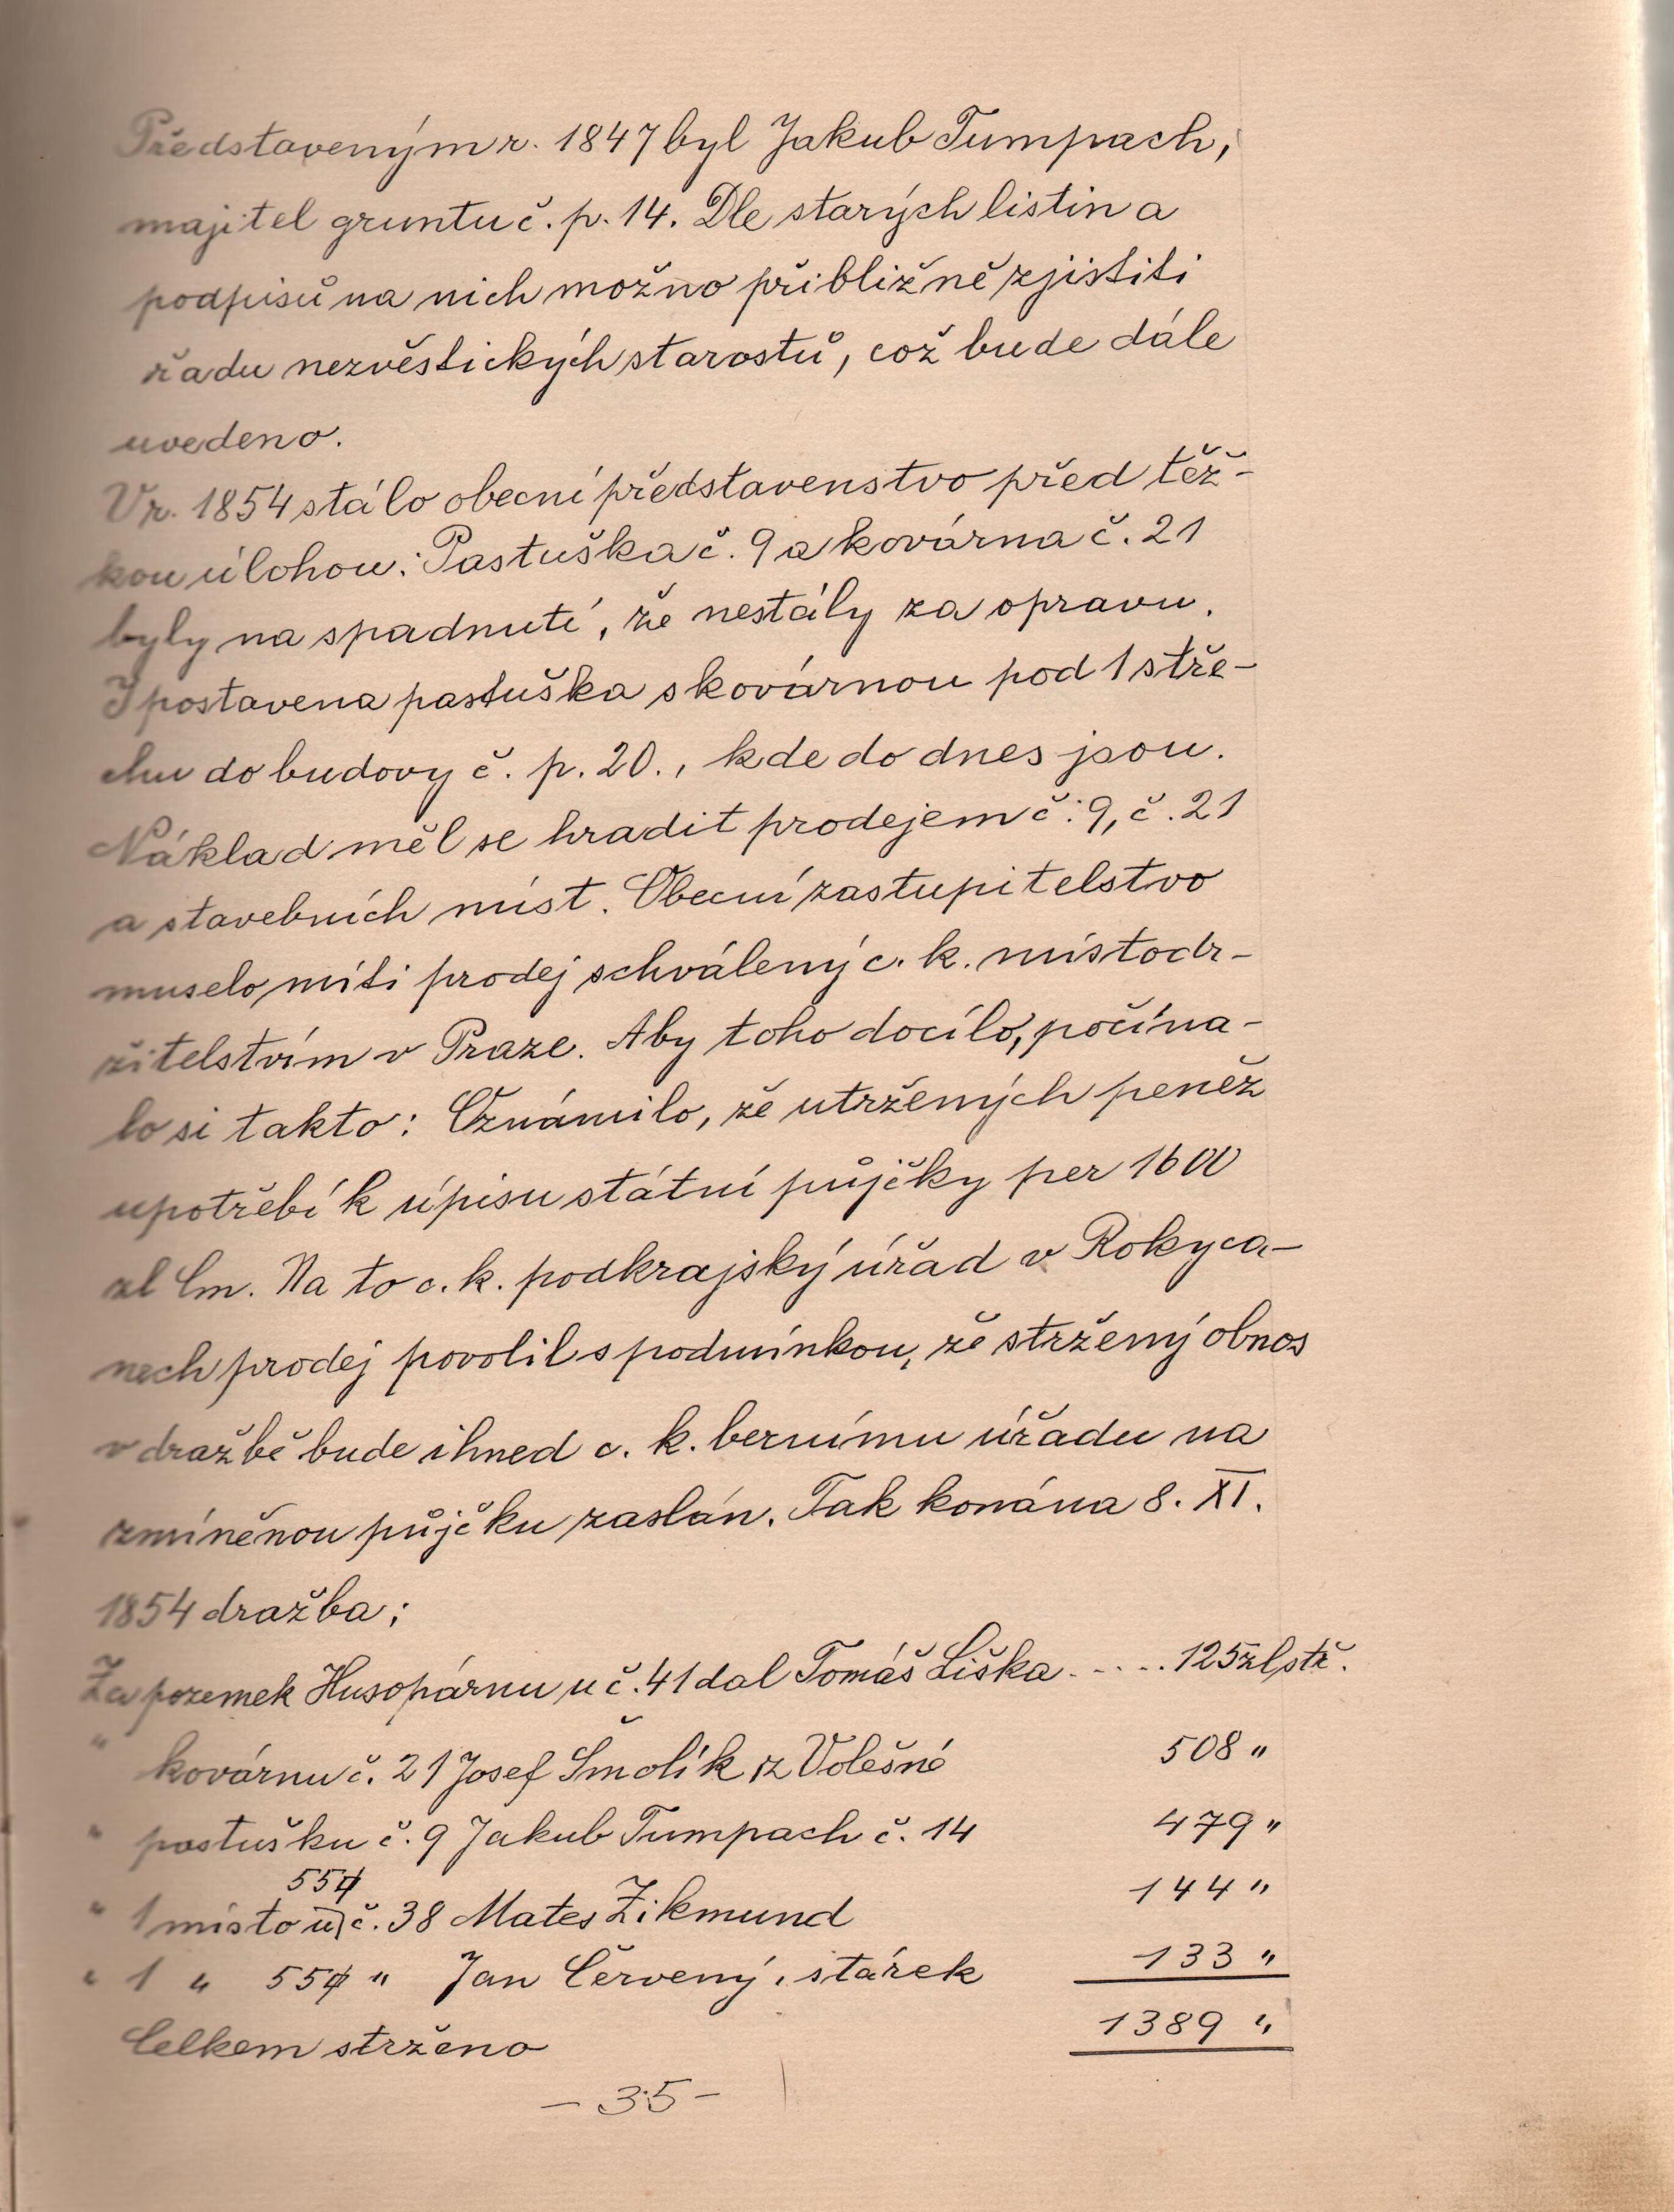 Představeným r. 1847 byl Jakub Tumpach,
majitel gruntu č. p. 14. Dle starých listin a
podpisů na nich možno přibližně zjistiti
řadu nezvěstických starostů, což bude dále
uvedeno.
V r. 1854 stálo obecní představenstvo před těž-
kou úlohou: Pastuška č. 9 a kovárna č. 21
byly na spadnutí, že nestály za opravu.
I postavena pastuška s kovárnou pod 1 stře-
chu do budovy č. p. 20., kde do dnes jsou.
Náklad měl se hradit prodejem č: 9, č. 21
a stavebních míst. Obecní zastupitelstvo
muselo míti prodej schválený c. k. místodr-
žitelstvím v Praze. Aby toho docílo, počína-
lo si takto: Oznámilo, že utržených peněz
upotřebí k úpisu státní půjčky per 1600
zl Cm. Na to c. k. podkrajský úřad v Rokyca-
nech prodej povolil s podmínkou, že stržený obnos
v dražbě bude ihned c. k. bernímu úřadu na
zmíněnou půjčku zaslán. Tak konána 8. XI.
1854 dražba:
Za pozemek Husopárnu u č. 41 dal Tomáš Liška . . . . . 125 zl stř.
" kovárnu č. 21 Josef Šmolík z Volešné 508 "
" pastušku č. 9 Jakub Tumpach č. 14 479 "
55
" 1 místo u č. 38 Mates Zikmund 144 "
" 1 " 55 " Jan Červený, stárek 133 "
Celkem strženo 1389 "
- 35 -